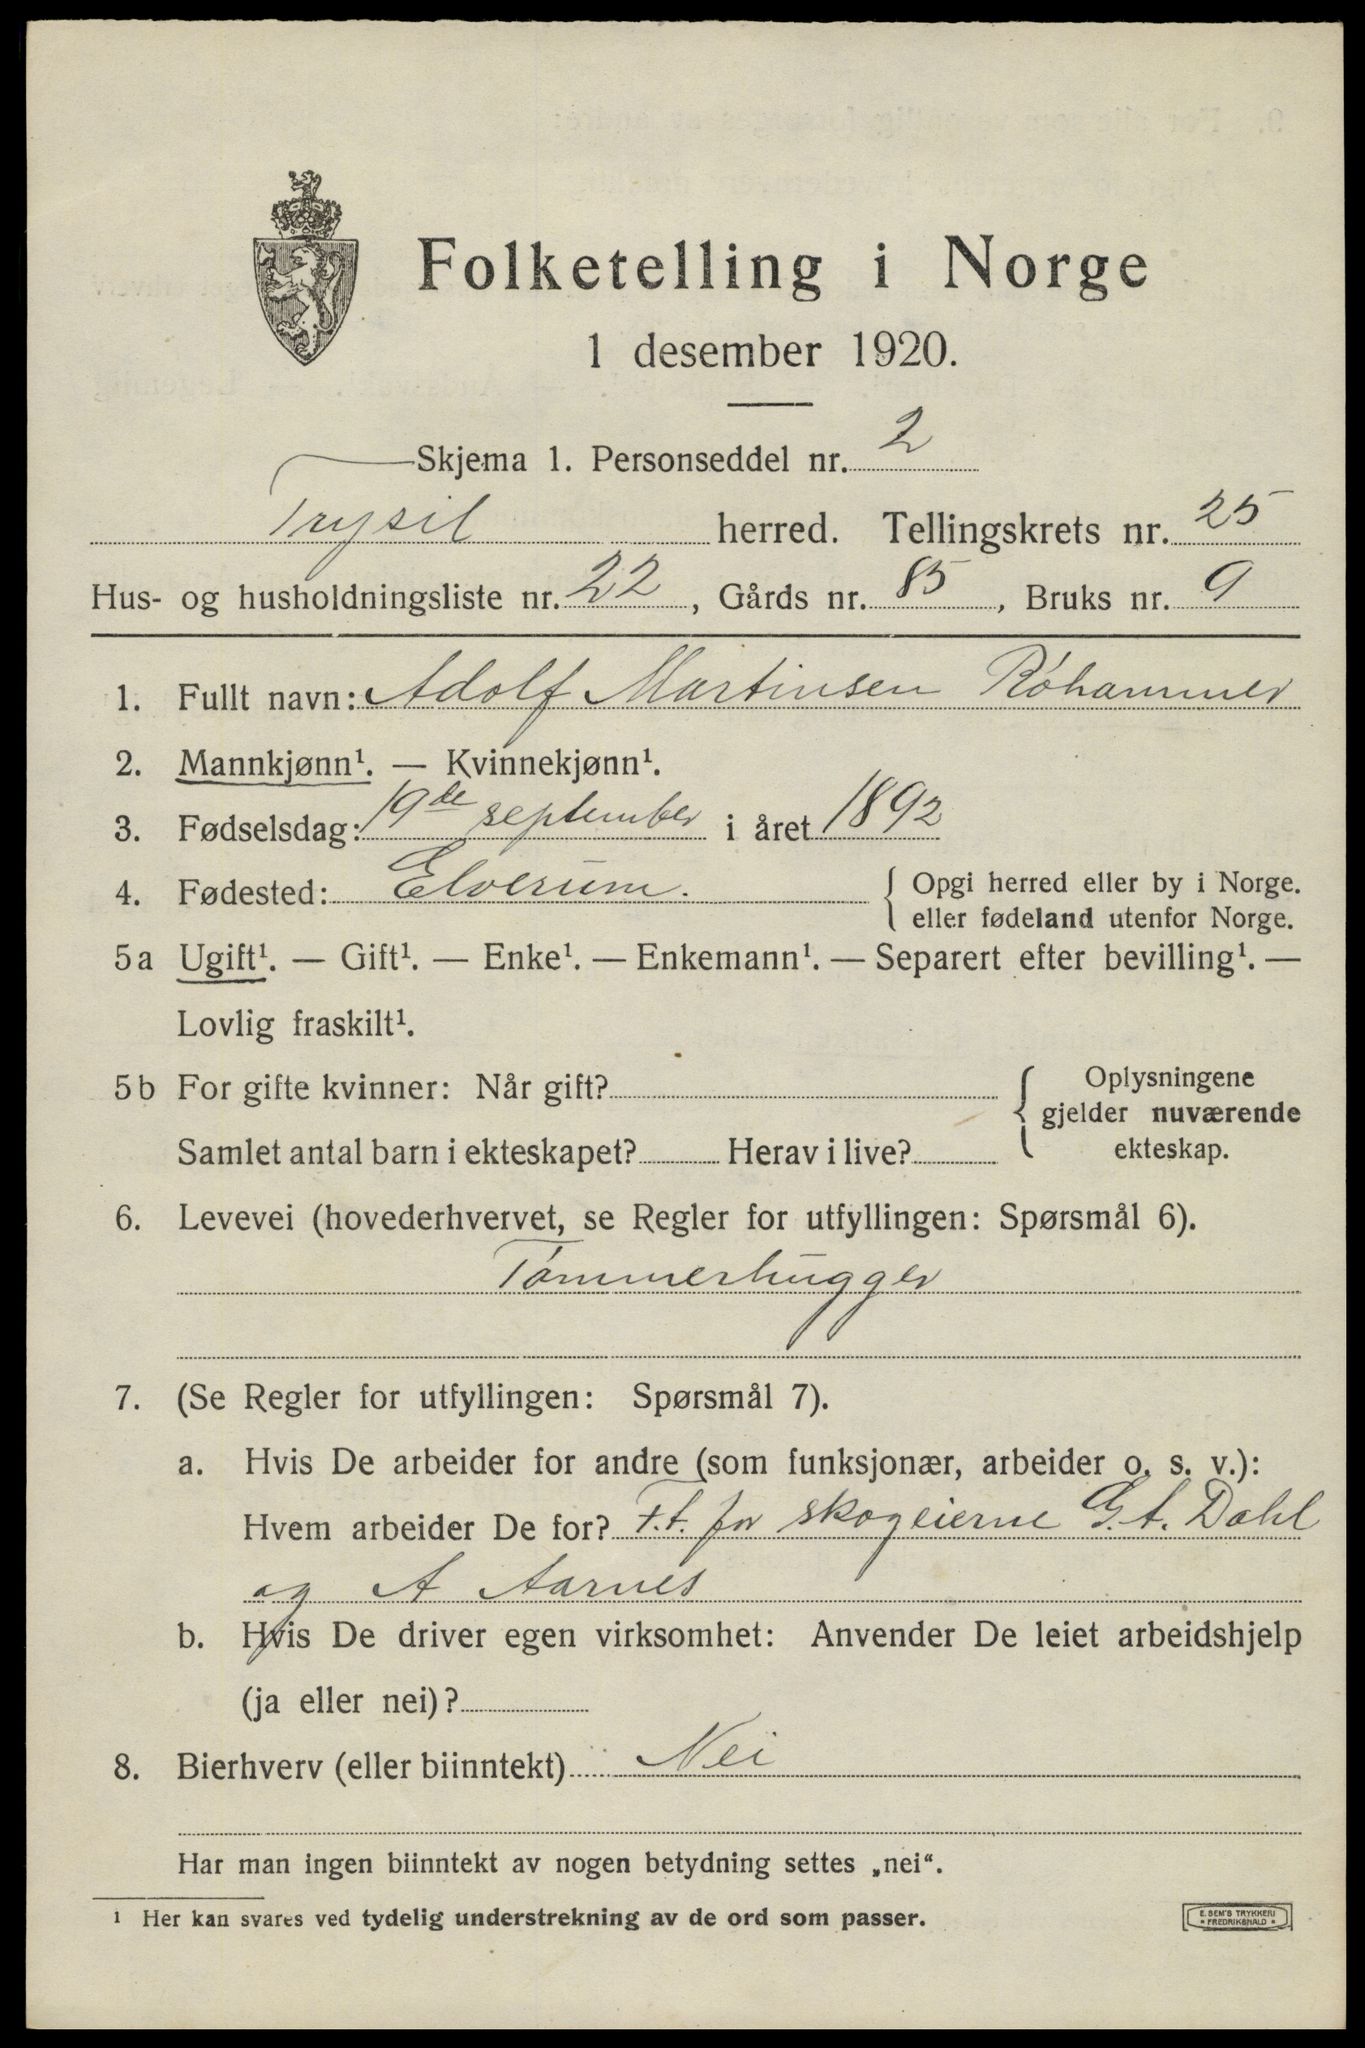 Folketelling i Norge
1 desember 1920.
Skjema 1. Personseddel nr. 2
Trysil herred. Tellingskrets nr. 25
Hus- og husholdningsliste nr. 22, Gårds nr. 85, Bruks nr. 9
1. Fullt navn: Adolf Martinsen Røhammer
2. Mannkjønn¹. — Kvinnekjønn¹.
3. Fødselsdag: 19de september i året 1892
4. Fødested: Elverum. { Opgi herred eller by i Norge.
eller fødeland utenfor Norge.
5a Ugift¹. — Gift¹. — Enke¹. — Enkemann¹. — Separert efter bevilling¹. —
Lovlig fraskilt¹.
5b For gifte kvinner: Når gift? { Oplysningene
gjelder nuværende
Samlet antal barn i ekteskapet? Herav i live? ekteskap.
6. Levevei (hovederhvervet, se Regler for utfyllingen: Spørsmål 6).
Tømmerhugger
7. (Se Regler for utfyllingen: Spørsmål 7).
a. Hvis De arbeider for andre (som funksjonær, arbeider o. s. v.):
Hvem arbeider De for? F.t. for skogeierne G.A. Dahl
og A Aarnes
b. Hvis De driver egen virksomhet: Anvender De leiet arbeidshjelp
(ja eller nei)?
8. Bierhverv (eller biinntekt) Nei
Har man ingen biinntekt av nogen betydning settes „nei“.
¹ Her kan svares ved tydelig understrekning av de ord som passer.
E. SEM'S TRYKKERI
FREDRIKSHALD